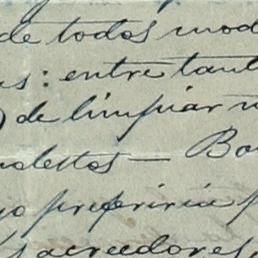 de todos mod
as: entre tant
) de limpiar m
molestos — Bo
yo preferiria p
s acreedores,